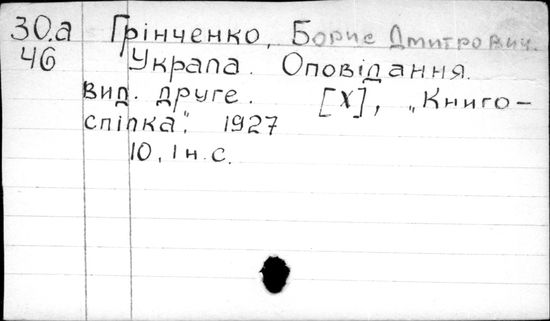 30.a Грінченко, Борис Дмитрович.
46 Украла. Оповідання.
вид. друге. [X], „Книго-
спілка". 1927
10, 1 н. с.